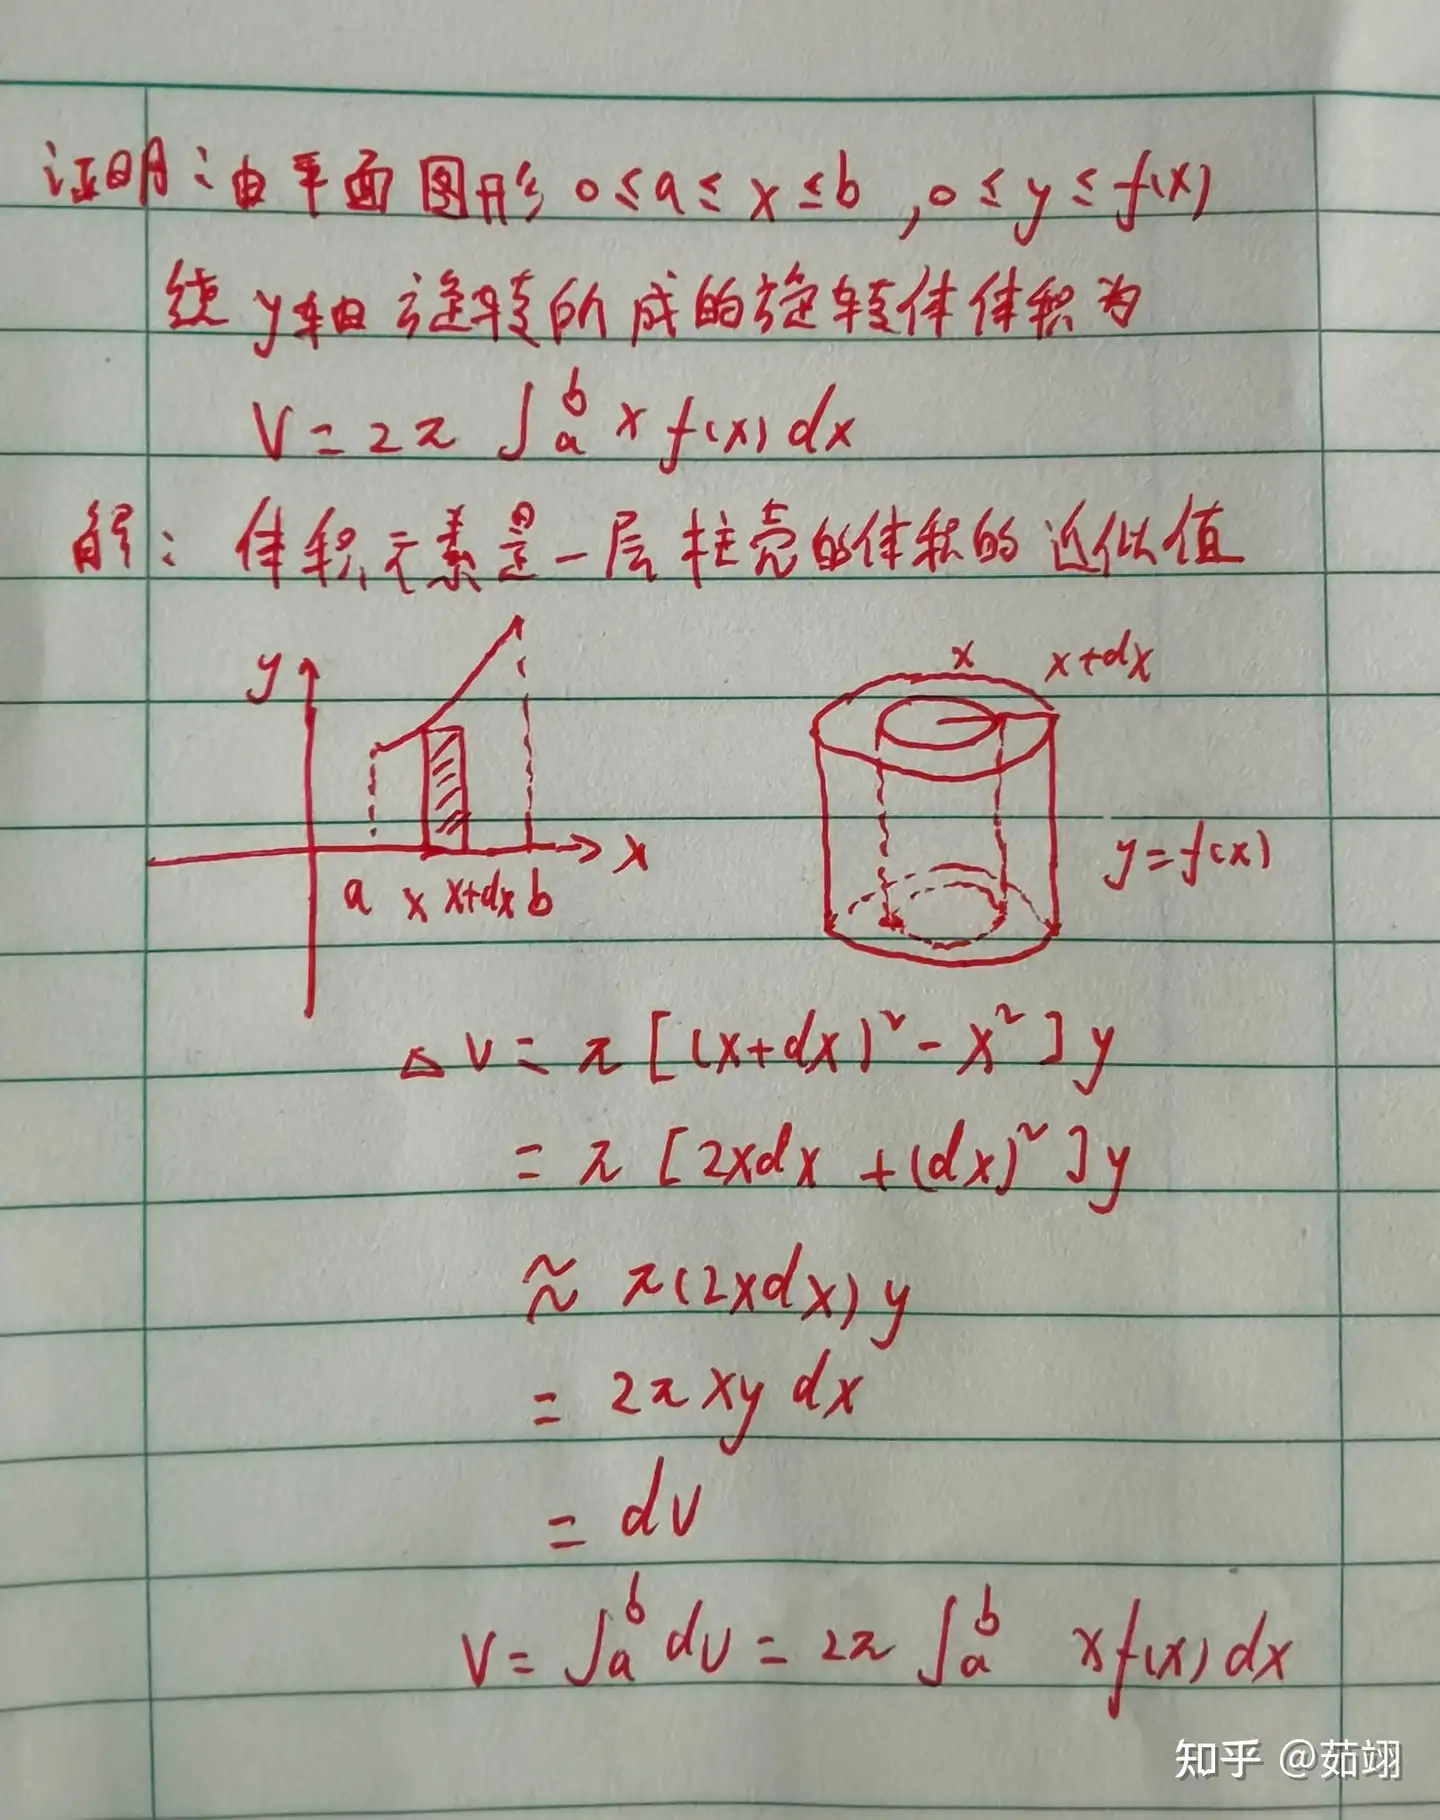 证明：由平面图形 0≤a≤x≤b ,0≤y≤f(x)
绕y轴旋转所成的旋转体体积为
V=2π∫_a^b x f(x) dx
解：体积元素是一层柱壳的体积的近似值
y
x
a x x+dx b
x x+dx
y=f(x)
△V=π[(x+dx)²-x²]y
=π[2xdx+(dx)²]y
≈π(2xdx)y
=2πxy dx
=dV
V=∫_a^b dV=2π∫_a^b xf(x)dx
知乎 @茹翊